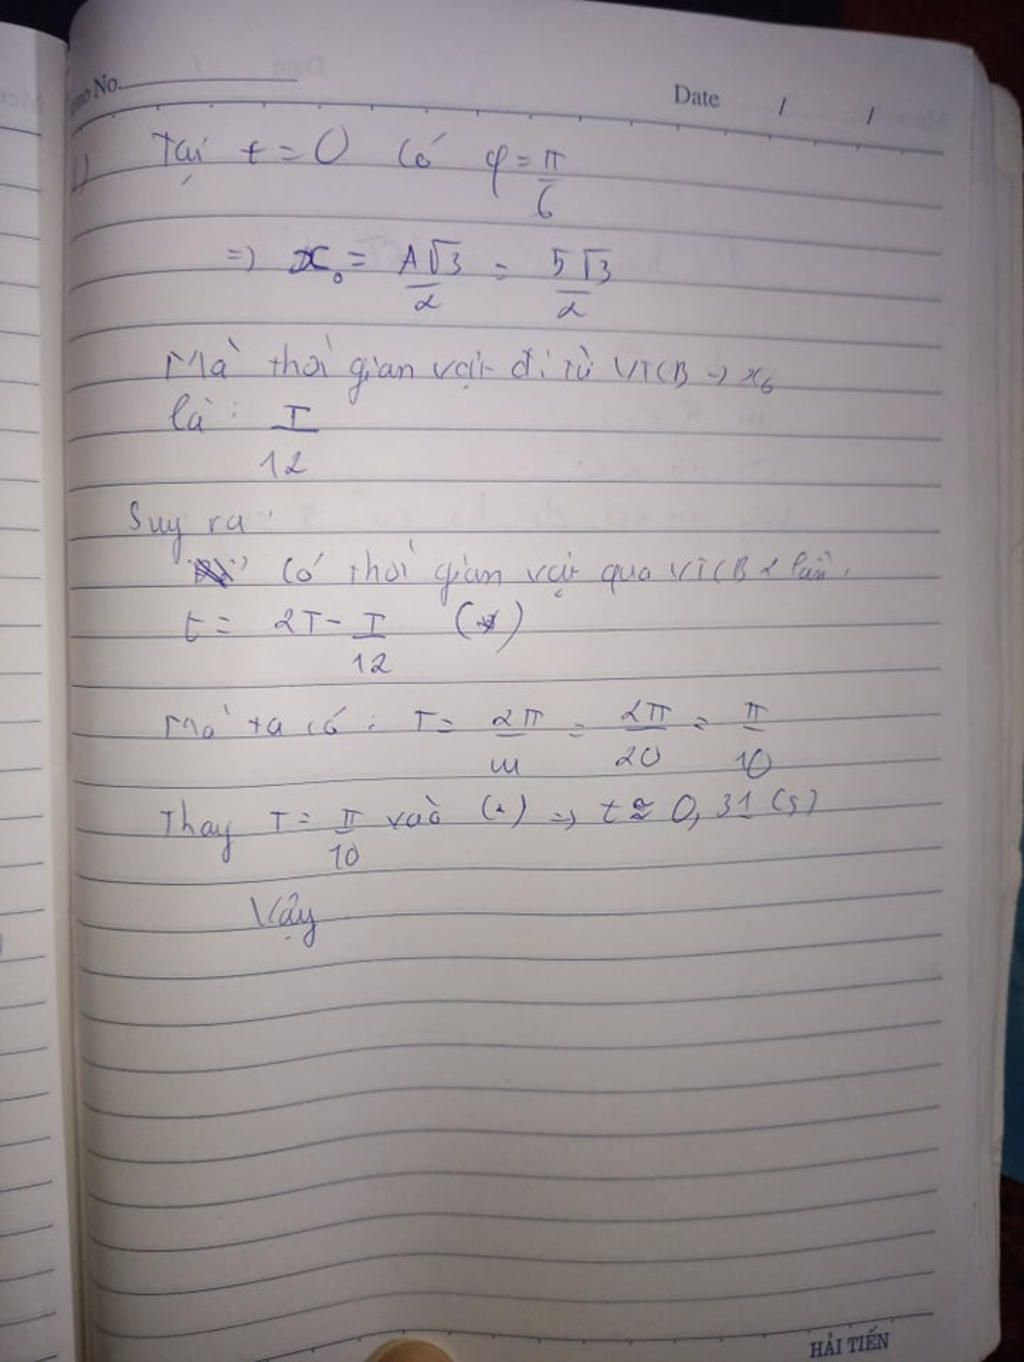 No.
Date / /
1) Tại t = 0 có φ = π/6
=> x₀ = A√3/2 = 5√3/2
Mà thời gian vật đi từ VTCB → x₀
là : T/12
Suy ra :
Có thời gian vật qua VTCB 2 lần.
t = 2T - T/12 (*)
Mà ta có : T = 2π/ω = 2π/20 = π/10
Thay T = π/10 vào (*) => t ≈ 0,31 (s)
Vậy
HẢI TIẾN